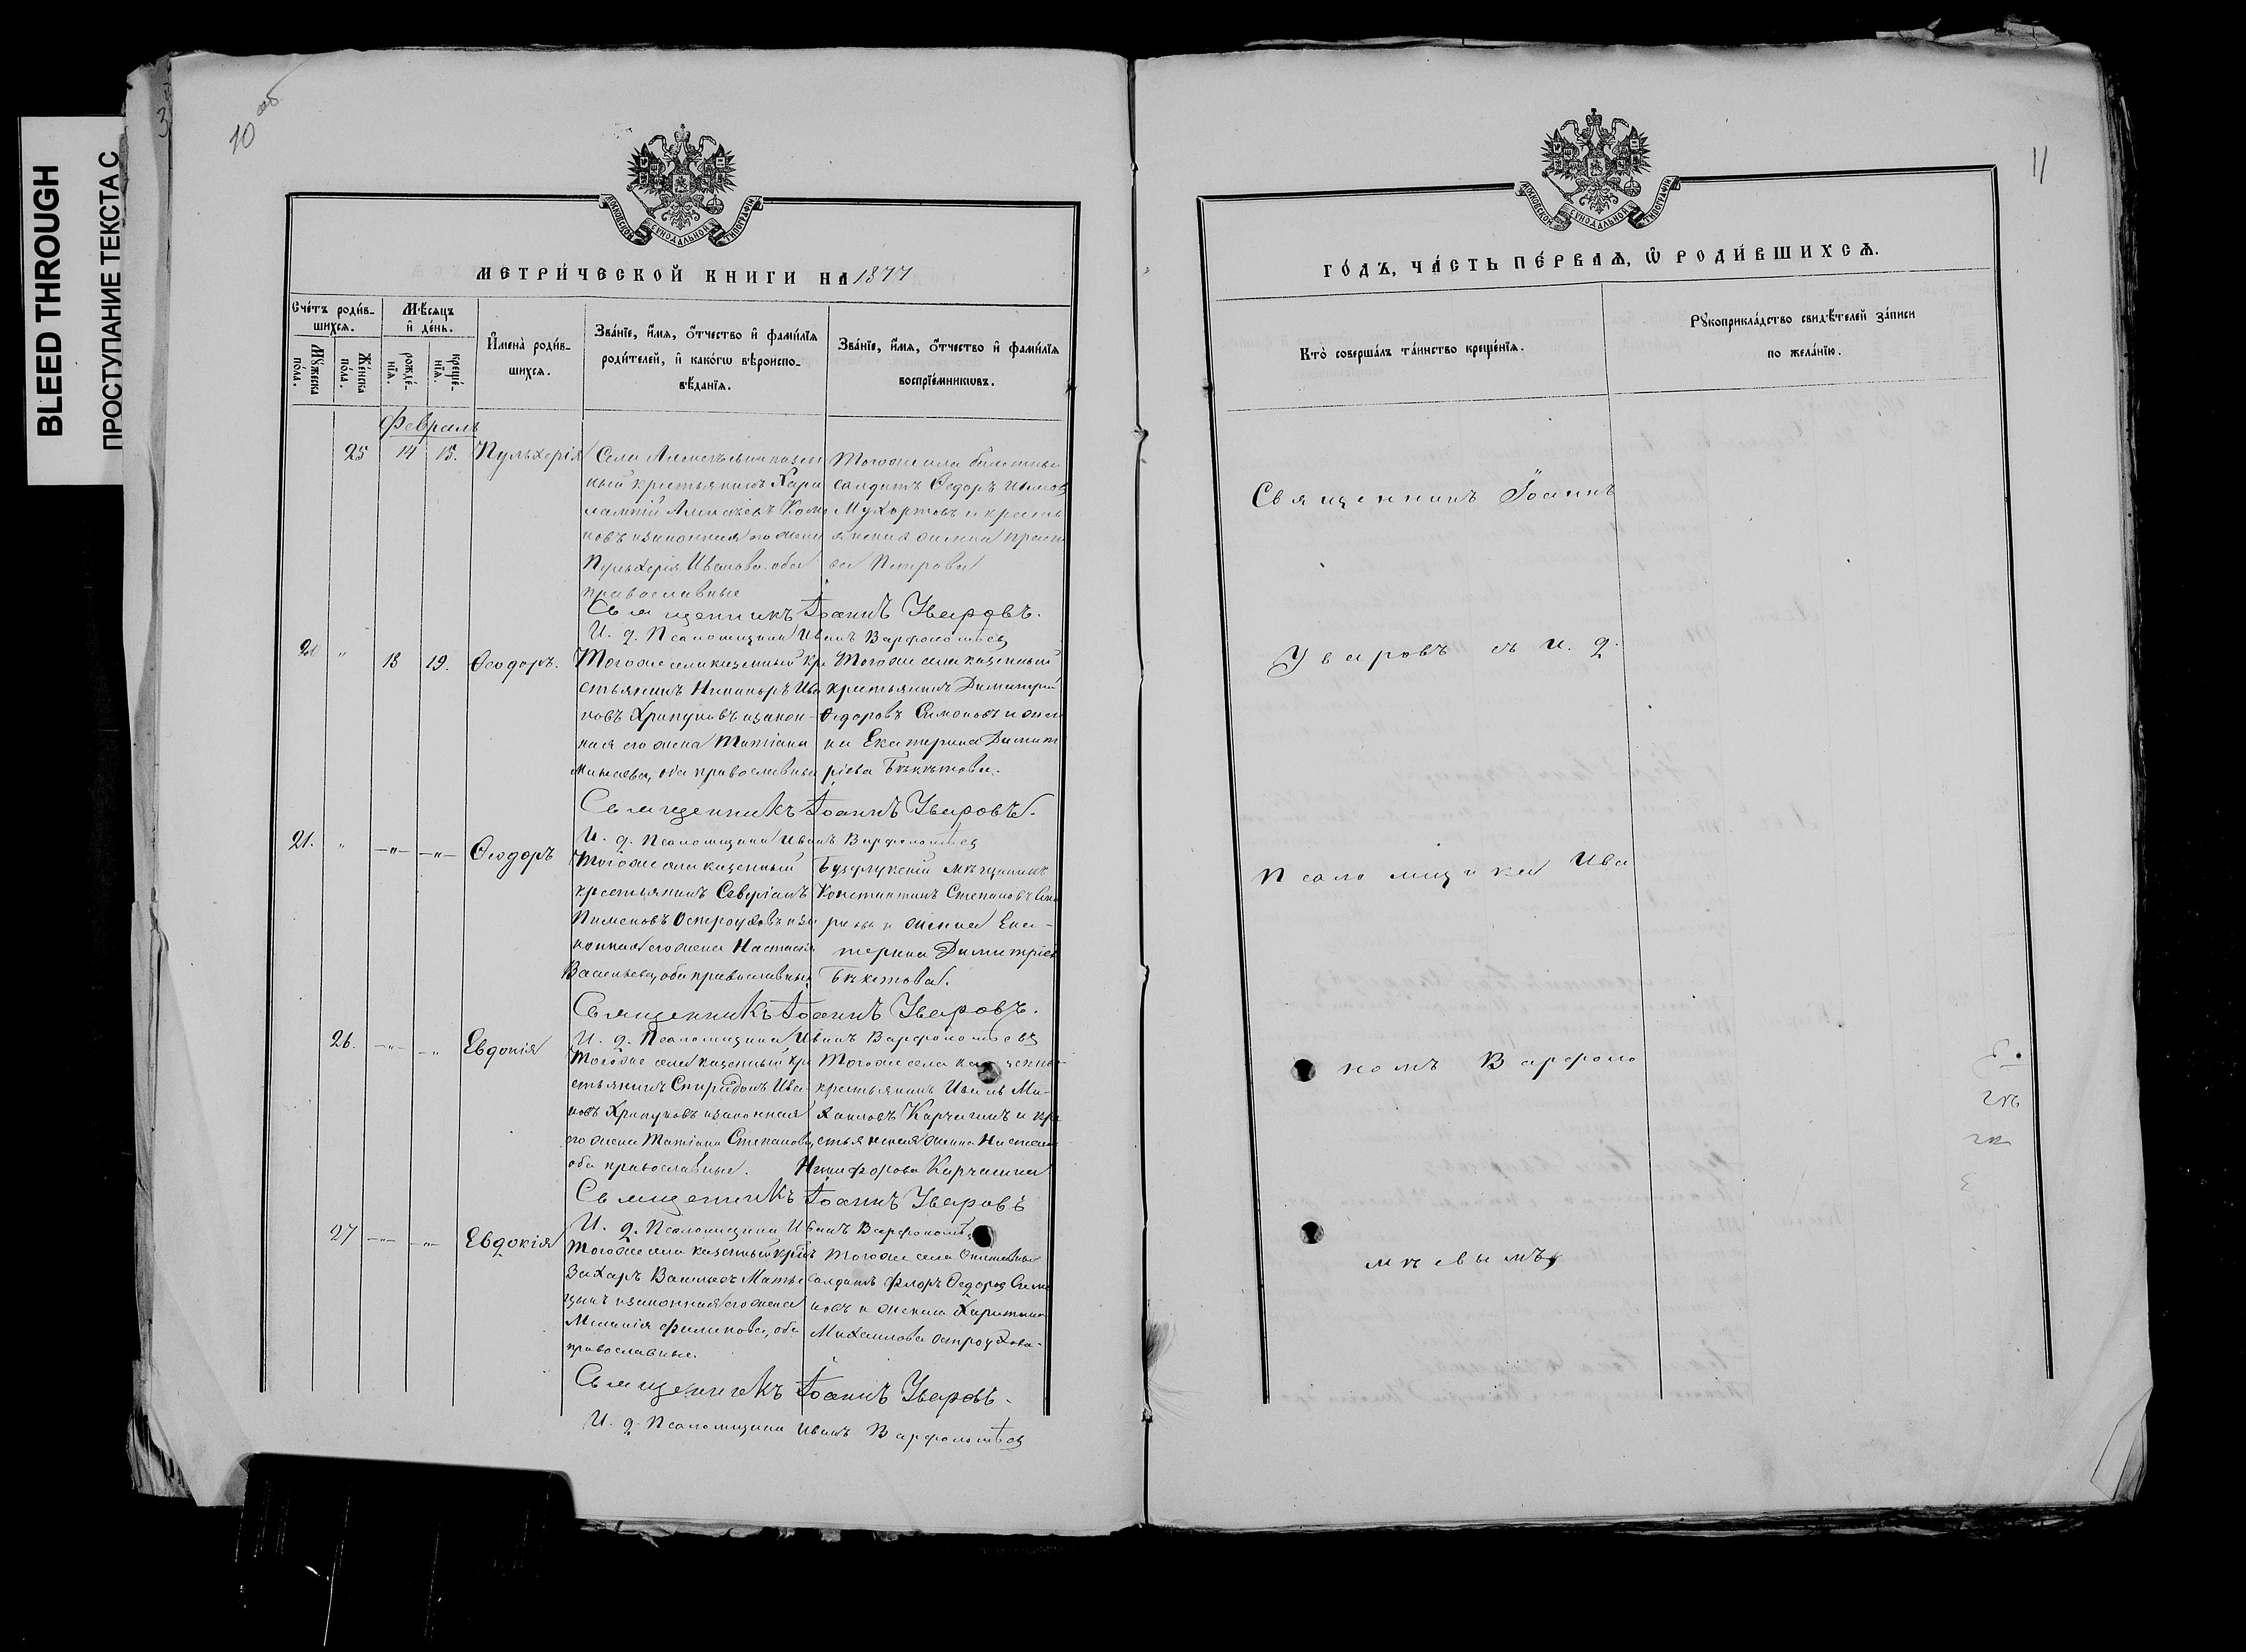 BLEED THROUGH
ПРОСТУПАНИЕ ТЕКСТА С
10 об
МОСКОВСКОЙ СѴНОДАЛЬНОЙ ТИПОГРАФІИ
МЕТРИ́ЧЕСКОЙ КНИГИ НА 1877
Сче́тъ роди́в-
шихся.
Мѣ́сяцъ
и҆ де́нь.
Мꙋ́жеска
по́ла.
Же́нска
по́ла.
рожде́-
нїѧ.
креще́-
нїѧ.
И҆мена̀ роди́в-
шихся.
Зва́нїе, и҆́мя, ѻ҆́тчество и҆ фами́лїя
роди́телей, и҆ како́гѡ вѣроиспо-
вѣ́данїя.
Зва́нїе, и҆́мя, ѻ҆́тчество и҆ фами́лїя
воспрїе́мникѡвъ.
Февраль
25 14 15. Пульхерія
Села казен
ный крестьянинъ Хара
лампій Алексѣевъ
законная его жена
Пульхерія Иванова. оба
православные
Тогоже села билетный
солдатъ Ѳедоръ
Мухортовъ и кресть
янская женка
Петрова
Священникъ Іоаннъ Уваровъ.
И. д. Псаломщика Иванъ Варфоломѣевъ
20 " 18 19. Ѳеодоръ.
Тогоже села казенный кре
стьянинъ Никаноръ Ива
новъ Хрипуновъ и закон-
ная его жена Татіана
оба православные
Тогоже села казенный
крестьянинъ Димитрій
Ѳедоровъ Симоновъ и жен
ка Екатерина Димит
ріева Бѣкетова.
Священникъ Іоаннъ Уваровъ.
И. д. Псаломщика Иванъ Варфоломѣевъ
21. " -"- -"- Ѳеодоръ
Тогоже села казенный
крестьянинъ Северіанъ
Пименовъ Остроуховъ и за
конная его жена Настасія
Васильева, оба православные
Бузулукскій мѣщанинъ
Константинъ Степановъ
и женка Ека-
терина Димитріев
Бѣкетова.
Священникъ Іоаннъ Уваровъ.
И. д. Псаломщика Иванъ Варфоломѣевъ
26. -"- -"- Евдокія
Тогоже села казенный кре
стьянинъ Спиридонъ Ива
новъ Хрипуновъ и законная
его жена Татіана Степанова
оба православные.
Тогоже села казенный
крестьянинъ Иванъ Ми-
хаиловъ Карчагинъ и кре
стьянская женка Настасія
Никифорова Карчагина
Священникъ Іоаннъ Уваровъ
И. д. Псаломщика Иванъ Варфоломѣ
27 -"- -"- Евдокія
Тогоже села казенный кр
Захаръ Васильевъ
и законная его жена
Меланія Филипова, оба
православные.
Тогоже села
солдатъ Флоръ Ѳедоровъ Симо
новъ и женка Харитина
Михаилова Остроухова.
Священникъ Іоаннъ Уваровъ.
И. д. Псаломщика Иванъ Варфоломѣевъ
11
МОСКОВСКОЙ СѴНОДАЛЬНОЙ ТИПОГРАФІИ
ГО́ДЪ, ЧА́СТЬ ПЕ́РВАѦ, Ѽ РОДИ́ВШИХСѦ.
Кто̀ соверша́лъ та́инство креще́нїя.
Рꙋкоприкла́дство свидѣ́телей за́писи
по жела́нїю.
Священникъ Іоаннъ
Уваровъ съ и. д.
Псаломщика Ива
номъ Варфоло
мѣевымъ